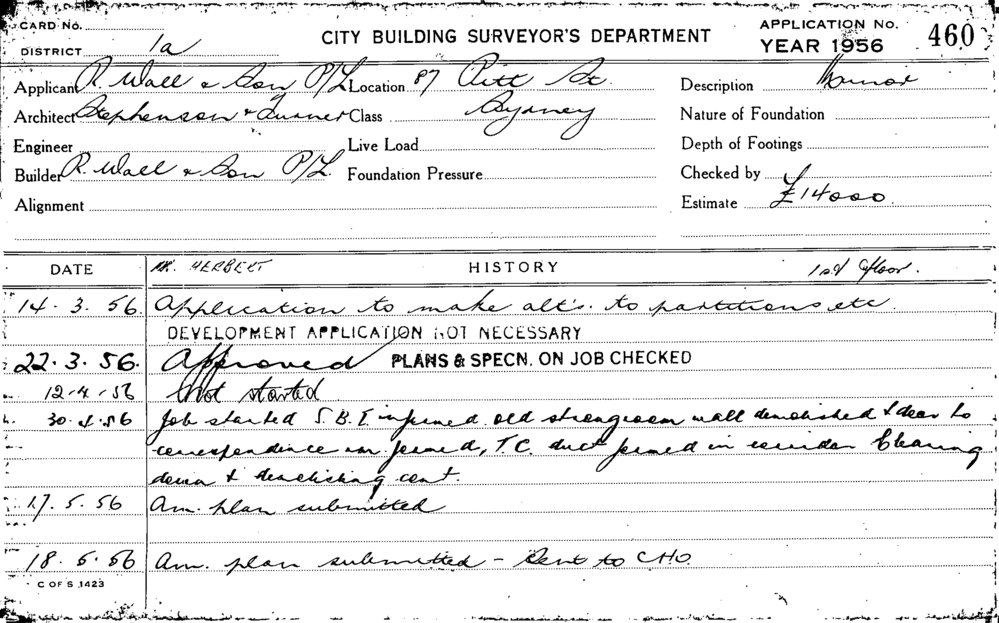 CARD No.
DISTRICT 1a
CITY BUILDING SURVEYOR'S DEPARTMENT
APPLICATION No. 460
YEAR 1956
Applicant R. Wall & Son P/L Location 87 Pitt St. Description Minor
Architect Stephenson & Turner Class Sydney Nature of Foundation
Engineer Live Load Depth of Footings
Builder R. Wall & Son P/L. Foundation Pressure Checked by
Alignment Estimate £14000.
DATE MR. HERBERT HISTORY 1st floor.
14.3.56. Application to make alt's. to partitions etc
DEVELOPMENT APPLICATION NOT NECESSARY
22.3.56. Approved PLANS & SPECN. ON JOB CHECKED
12.4.56 Not started
30.4.56 Job started S.B.I. informed old strongroom wall demolished & door to
correspondence rm formed, T.C. duct formed in corridor Clearing
down & demolishing cont.
17.5.56 Am. plan submitted
18.5.56 Am. plan submitted - Sent to CHO.
C OF S 1423